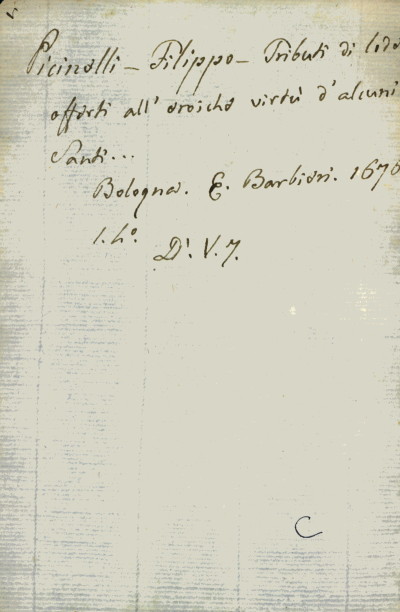 Picinelli - Filippo - Tributi di lode
offerti all' eroiche virtù d'alcuni
Santi...
Bologna. E. Barbieri. 1676
1. 4°. D'. V. 7.
C